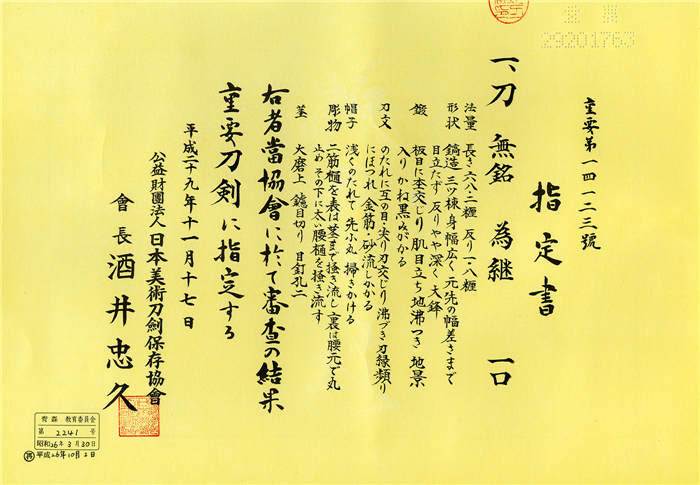 重要
29201763
重要第一四一二三號
指定書
一、刀 無銘 為継 一口
法量 長さ六八・二糎 反り一・八糎
形状 鎬造 三ツ棟 身幅広く 元先の幅差さまで
目立たず 反りやや深く 大鋒
鍛 板目に杢交じり 肌目立ち 地沸つき 地景
入り かね黒みがかる
刃文 のたれに互の目・尖り刃交じり 沸づき 刃縁頻り
にほつれ 金筋・砂流しかかる
帽子 浅くのたれて 先小丸 掃きかける
彫物 二筋樋を表は茎まで掻き流し 裏は腰元で丸
止め その下に太い腰樋を掻き流す
茎 大磨上 鑢目切り 目釘孔二
右者當協會に於て審査の結果
重要刀剣に指定する
平成二十九年十一月十七日
公益財團法人日本美術刀劍保存協會
會長 酒井忠久
青森 教育委員会
第 2241 号
昭和26年3月30日
平成26年10月2日